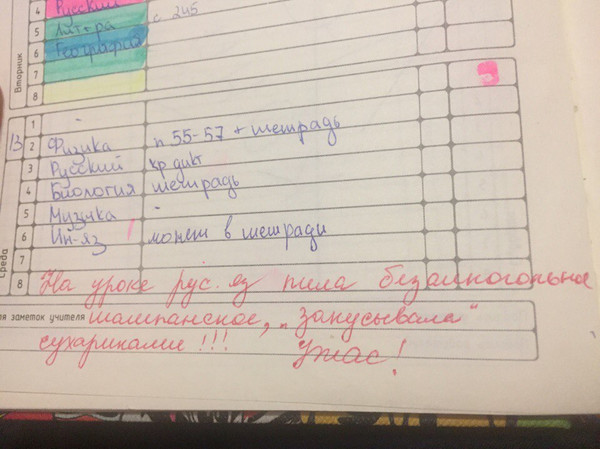 4 Русский
5 Литера с 245
6 География
7
8
Вторник
1 -
13 2 Физика п 55-57 + тетрадь
3 Русский кр дикт
4 Биология тетрадь
5 Музыка -
6 Ин-яз может в тетради
7
Среда
8 На уроке рус. яз пила безалкогольное
ля заметок учителя шампанское, „закусывала"
сухариками!!! Ужас!